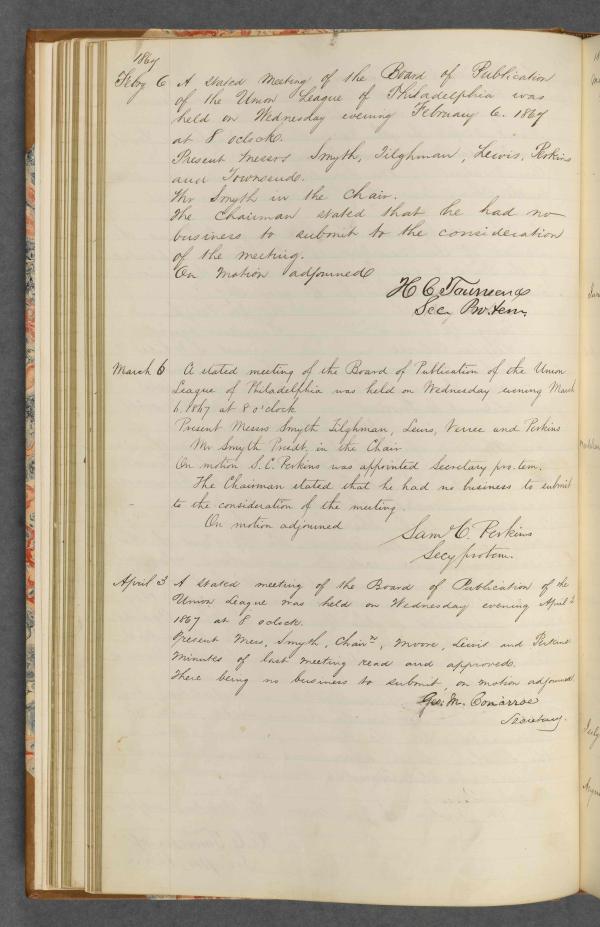 1867
Feby 6 A stated meeting of the Board of Publication
of the Union League of Philadelphia was
held on Wednesday evening February 6. 1867
at 8 oclock.
Present Messrs Smyth, Tilghman, Lewis, Perkins
and Townsend.
Mr Smyth in the Chair.
The Chairman stated that he had no
business to submit to the consideration
of the meeting.
On motion adjourned
H C Townsend
Secy Pro. tem.
March 6 A stated meeting of the Board of Publication of the Union
League of Philadelphia was held on Wednesday evening March
6, 1867 at 8 o'clock
Present Messrs Smyth Tilghman, Lewis, Verree and Perkins
Mr Smyth Presdt. in the Chair
On motion S. C. Perkins was appointed Secretary pro. tem.
The Chairman stated that he had no business to submit
to the consideration of the meeting.
On motion adjourned
Saml C. Perkins
Secy protem.
April 3 A stated meeting of the Board of Publication of the
Union League was held on Wednesday evening April 3
1867 at 8 oclock.
Present Mess, Smyth, Chairn, Moore, Lewis and Perkins
Minutes of last meeting read and approved.
There being no business to submit on motion adjourned
Geo: M. Conarroe
Secretary.